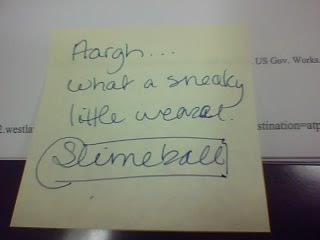 Aargh...
US Gov. Works.
what a sneaky
little weasel.
2.westla
stination=atp
Slimeball